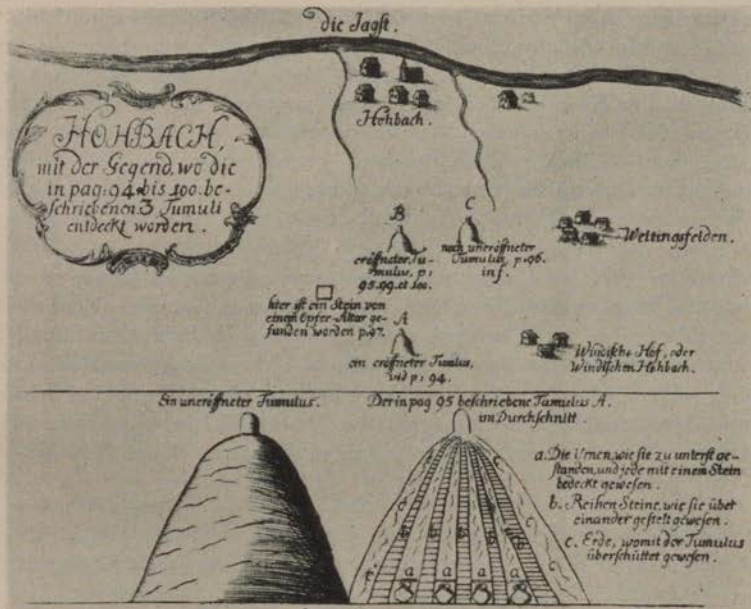 die Jagst.
HOHBACH,
mit der Gegend, wo die
in pag: 94. bis 100. be-
schriebenen 3 Tumuli
entdeckt worden.
Hohbach.
B
eröffneter Tu-
mulus, p:
95. 99. et 100.
C
noch uneröffneter
Tumulus, p. 96.
in f.
Weltingsfelden.
hier ist ein Stein von
einem Opfer-Altar ge-
funden worden p. 97.
A
ein eröffneter Tumulus,
vid p: 94.
Windische Hof, oder
Windischen Hohbach.
Ein uneröffneter Tumulus.
Der in pag 95 beschriebene Tumulus A.
im Durchschnitt.
a. Die Urnen, wie sie zu unterst ge-
standen, und jede mit einem Stein
bedeckt gewesen.
b. Reihen Steine, wie sie über
einander gestelt gewesen.
c. Erde, womit der Tumulus
überschüttet gewesen.
a a a a